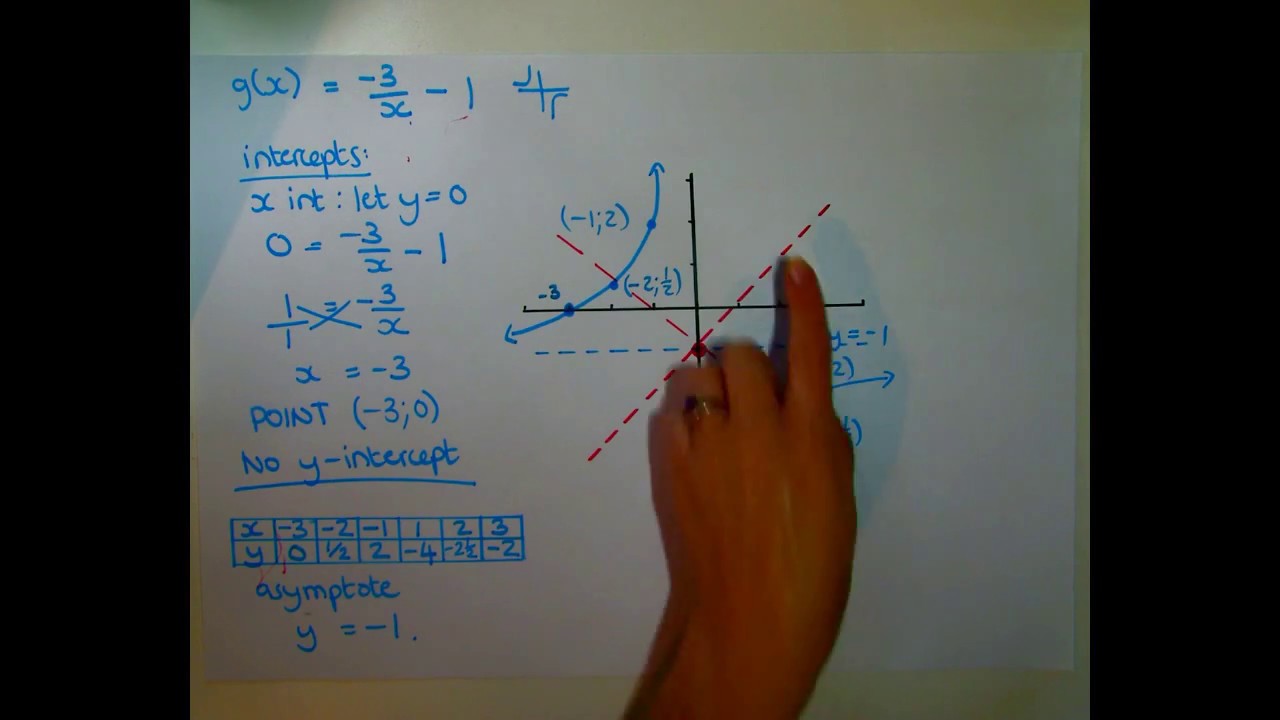 g(x) = -3/x - 1
intercepts:
x int : let y = 0
0 = -3/x - 1
1/1 = -3/x
x = -3
POINT (-3;0)
No y-intercept
x -3 -2 -1 1 2 3
y 0 1/2 2 -4 -2½ -2
asymptote
y = -1.
(-1;2)
(-2;½)
-3
y = -1
2)